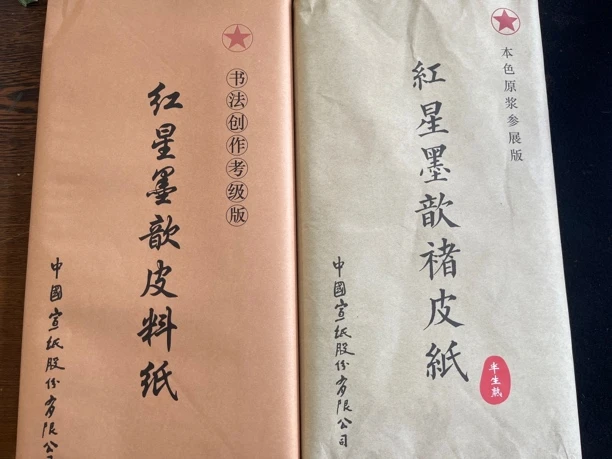 书法创作考级版
红星墨歆皮料纸
中國宣纸股份有限公司
本色原浆参展版
紅星墨歆褚皮紙
半生熟
中國宣纸股份有限公司